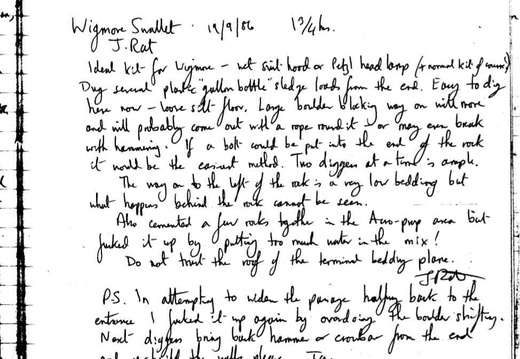 Wigmore Swallet. 19/9/86 1 3/4 hrs.
J. Rat
Ideal kit for Wigmore - wet suit hood or Petzl head lamp (+ normal kit of course!)
Dug several plastic "gallon bottle" sledge loads from the end. Easy to dig
here now - loose silt floor. Large boulder blocking way on will move
and will probably come out with a rope round it - or may even break
with hammering. If a bolt could be put into the end of the rock
it would be the easiest method. Two diggers at a time is ample.
The way on to the left of the rock is a very low bedding but
what happens behind the rock cannot be seen.
Also cemented a few rocks together in the Acro-prop area but
fucked it up by putting too much water in the mix!
Do not trust the roof of the terminal bedding plane.
J Rat
P.S. In attempting to widen the passage halfway back to the
entrance I fucked it up again by overdoing the boulder shifting.
Next diggers bring back hammer or crowbar from the end
please